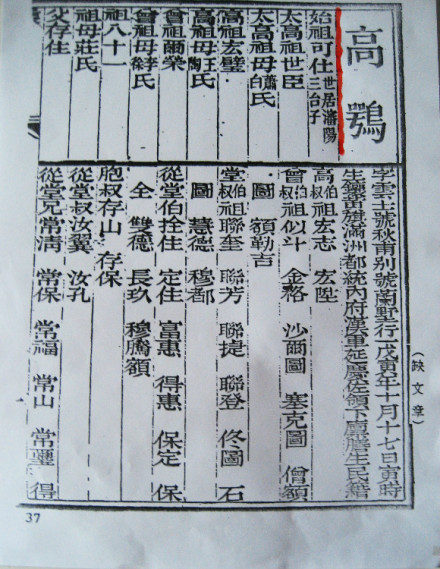 高鶚
字雲士號秋甫别號蘭墅行一戊寅年十月十七日寅時
生鑲黄旗滿洲都統內府漢軍延慶佐領下廩膳生民籍
(缺文章)
始祖可住 世居瀋陽三台子
太高祖世臣
太高祖母蕭白氏
高祖宏璧
高祖母王陶氏
曾祖爾榮
曾祖母氏
祖八十一
祖母莊氏
父存住
高伯叔祖宏志 宏陞
曾伯叔祖似斗 金格 沙爾圖 塞克圖 僧額
圖 額勒吉
堂伯叔祖聯奎 聯芳 聯捷 聯登 佟圖 石
圖 慧德 穆都
從堂伯拴住 定住 富惠 得惠 保定 保
全 雙德 長玖 穆騰額
胞叔存山 存保
從堂叔汝翼 汝孔
從堂兄常清 常保 常福 常山 常 得
37